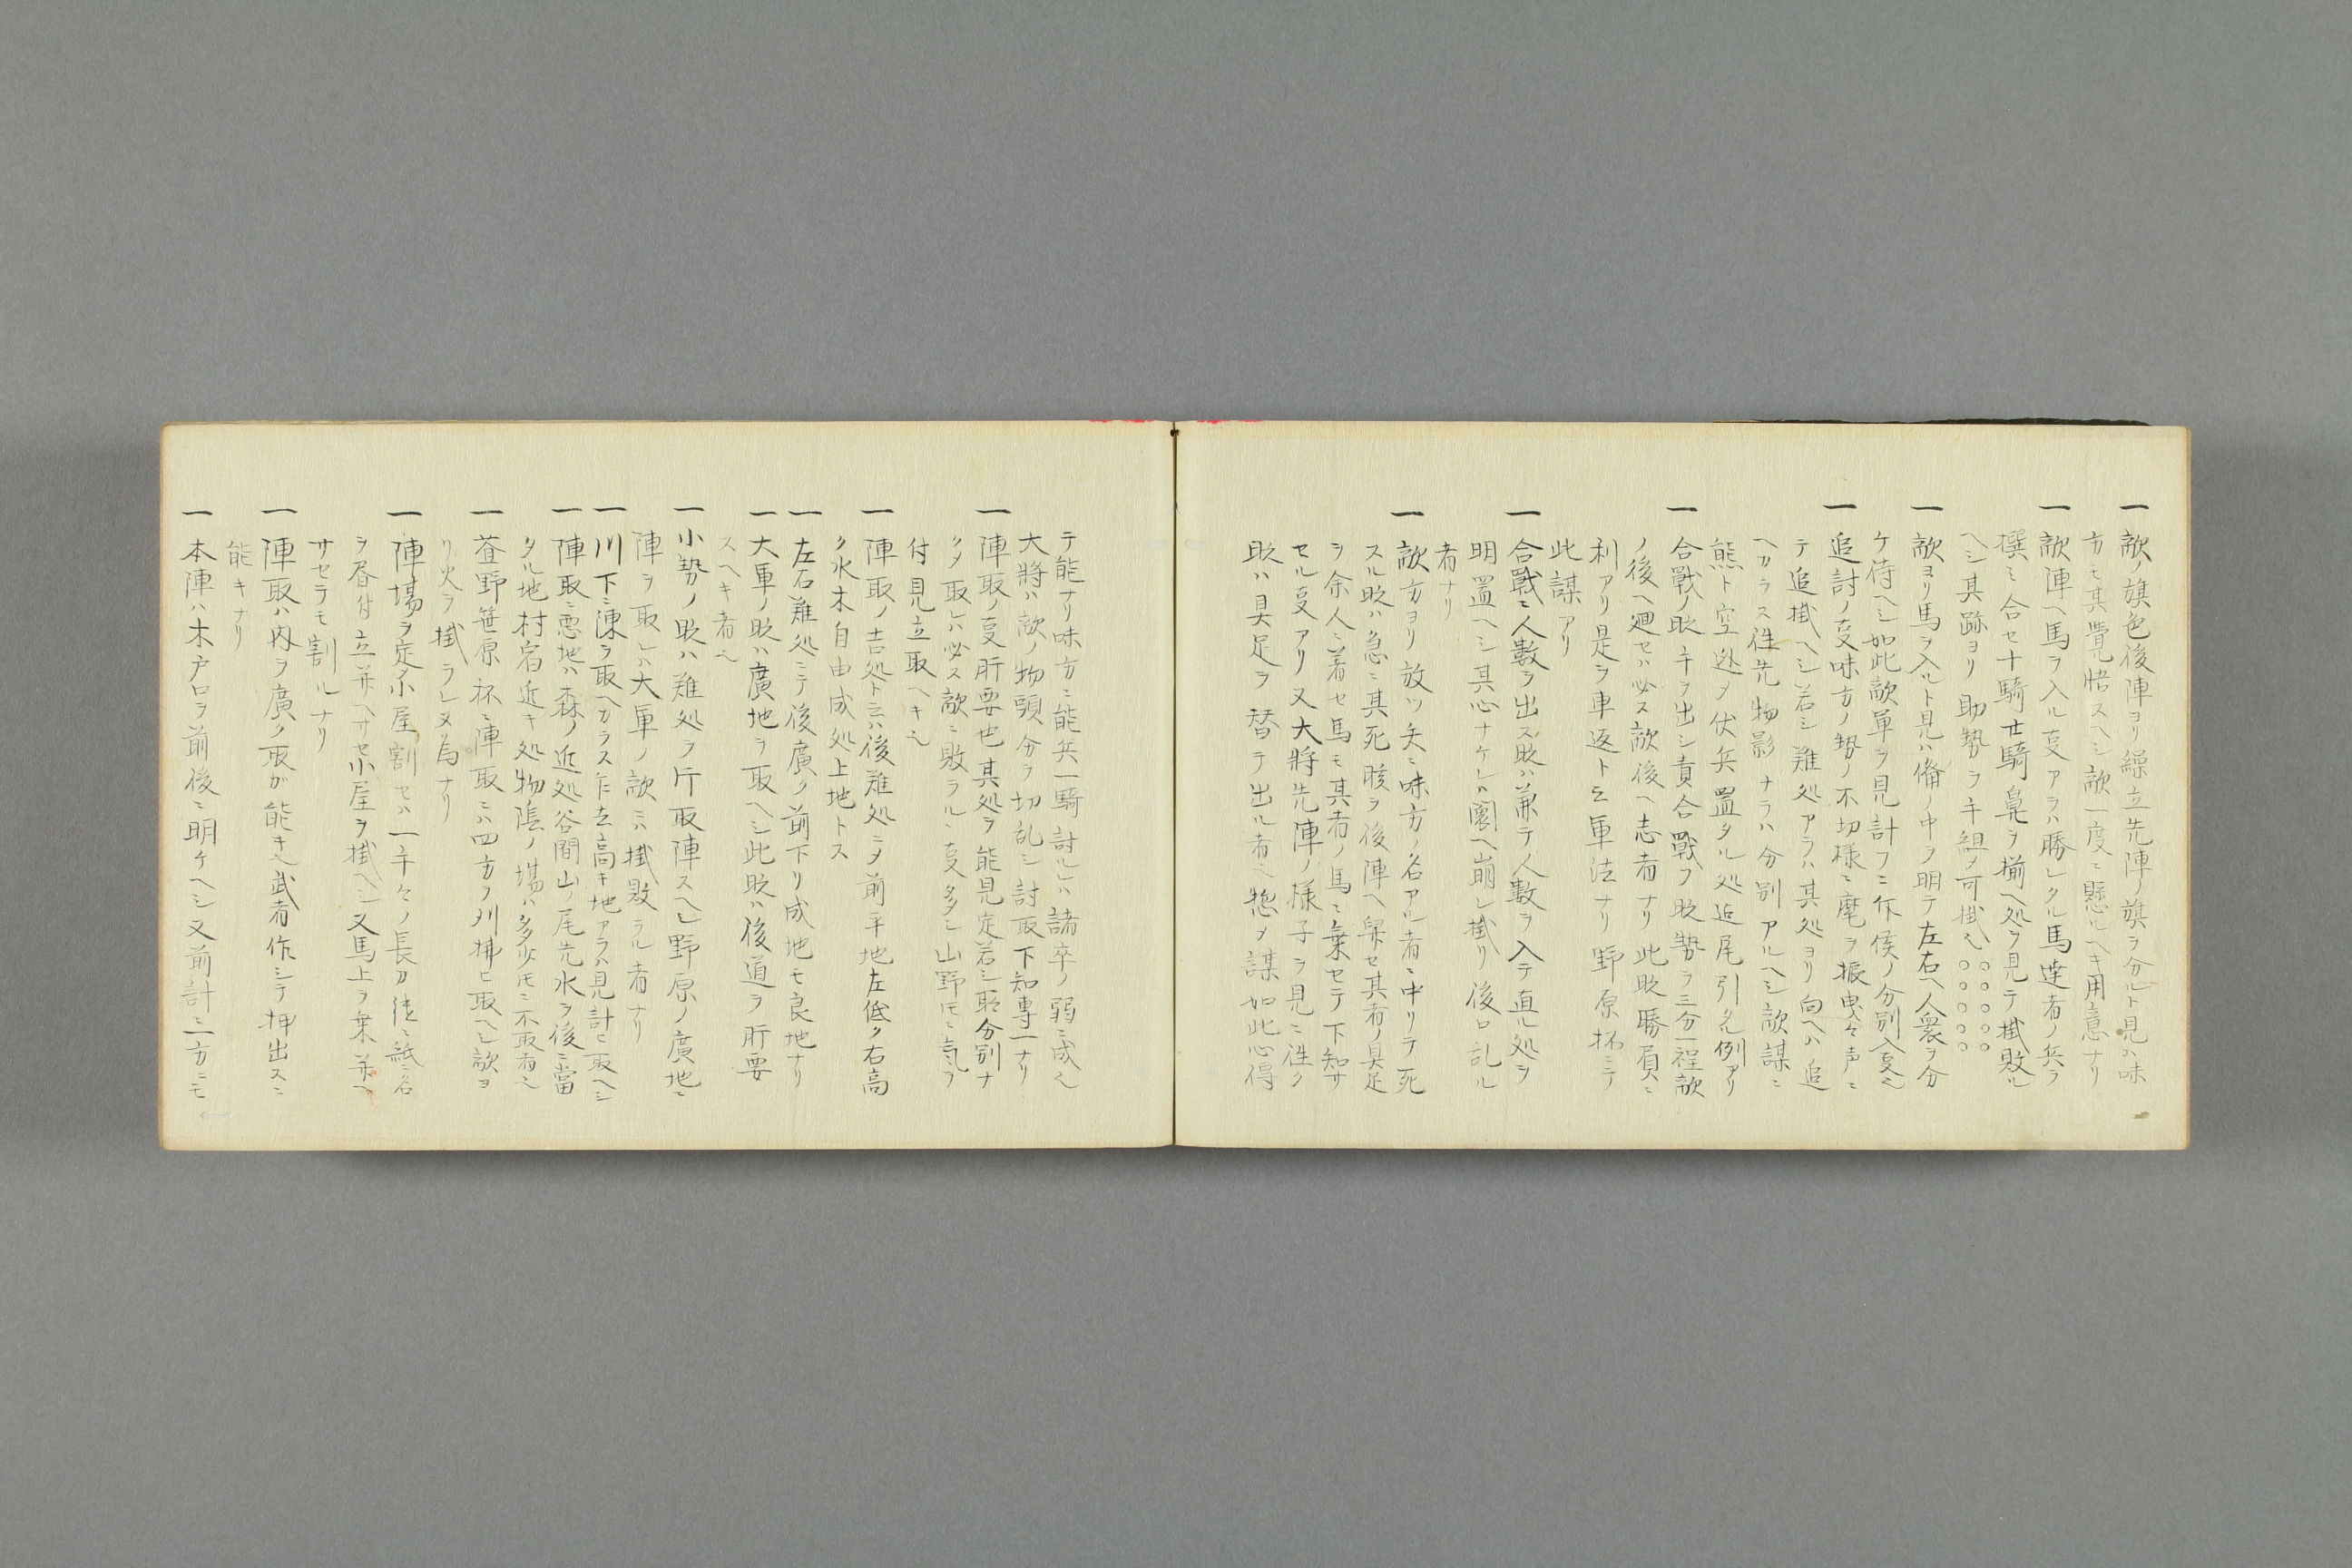 一 敵ノ旗色後陣ヨリ繰立先陣ノ旗ヲ分ルト見ハ味
方モ其覺悟スヘシ敵一度ニ懸ルヘキ用意ナリ
一 敵陣ヘ馬ヲ入ル叓アラハ勝レタル馬達者ノ兵ヲ
撰ミ合セ十騎廿騎鼻ヲ揃ヘ処ヲ見テ掛敗ル
ヘシ其跡ヨリ助勢ヲ手組メ可掛也
一 敵ヨリ馬ヲ入ルト見ハ備ノ中ヲ明テ左右ヘ人衆ヲ分
ケ待ヘシ如此敵軍ヲ見計フニ作侯ノ分別入叓也
一 追討ノ叓味方ノ勢ノ不切様ニ麾ヲ振曳々声ニ
テ追掛ヘシ若シ難処アラハ其処ヨリ向ヘハ追
ヘカラス徃先物影ナラハ分別アルヘシ敵謀ニ
熊ト空迯メ伏兵置タル処迄尾引タル例アリ
一 合戰ノ時手ヲ出シ責合戰フ時勢ヲ三分一程敵
ノ後ヘ廻セハ必ス敵後ヘ志者ナリ此時勝負ニ
利アリ是ヲ車返ト云軍法ナリ野原抔ニテ
此謀アリ
一 合戰ニ人數ヲ出ス時ハ兼テ人數ヲ入テ直ル処ヲ
明置ヘシ其心ナケレハ圏ヘ崩レ掛リ後口乱ル
者ナリ
一 敵方ヨリ放ツ矢ニ味方ノ名アル者ニ中リテ死
スル時ハ急ニ其死骸ヲ後陣ヘ舁セ其者ノ具足
ヲ余人ニ著セ馬モ其者ノ馬ニ乗セテ下知サ
セル叓アリ又大將先陣ノ様子ヲ見ニ徃ク
時ハ具足ヲ替テ出ル者也惣メ謀如此心得
テ能ナリ味方ニ能兵一騎討ルレハ諸卒ノ弱ニ成也
大將ハ敵ノ物頭分ヲ切乱シ討取下知專一ナリ
一 陣取ノ叓肝要也其処ヲ能見定若シ聊分別ナ
クメ取レハ必ス敵ニ敗ラルヽ叓多シ山野圧ニ気ヲ
付見立取ヘキ也
一 陣取ノ吉処ト云ハ後難処ニメ前平地左低ク右高
ク水木自由成処上地トス
一 左右難処ニテ後廣ク前下リ成地モ良地ナリ
一 大軍ノ時ハ廣地ヲ取ヘシ此時ハ後道ヲ肝要
スヘキ者也
一 小勢ノ時ハ難処ヲ片取陣スヘシ野原ノ廣地ニ
陣ヲ取レハ大軍ノ敵ニハ掛敗ラル者ナリ
一 川下ニ陳ヲ取ヘカラス乍去高キ地アラハ見計ヒ取ヘシ
一 陣取ニ悪地ハ森ノ近処谷間山ノ尾先水ヲ後ニ當
タル地村宿近キ処物陰ノ場ハ多少圧ニ不取者也
一 萱野笹原抔ニ陣取ニハ四方ヲ刈拂ヒ取ヘシ敵ヨ
リ火ヲ掛ラレヌ為ナリ
一 陣場ヲ定タ小屋割セハ一手々ノ長刀徒ニ紙ニ名
ヲ昼付立並ヘサセ小屋ヲ掛ヘシ又馬上ヲ乗並ヘ
サセラモ割ルナリ
一 陣取ハ內ヲ廣ク取ガ能キ也武者作シテ押出スニ
能キナリ
一 本陣ハ木戸口ヲ前後ニ明ケヘシ又前計ニ二方ニモ